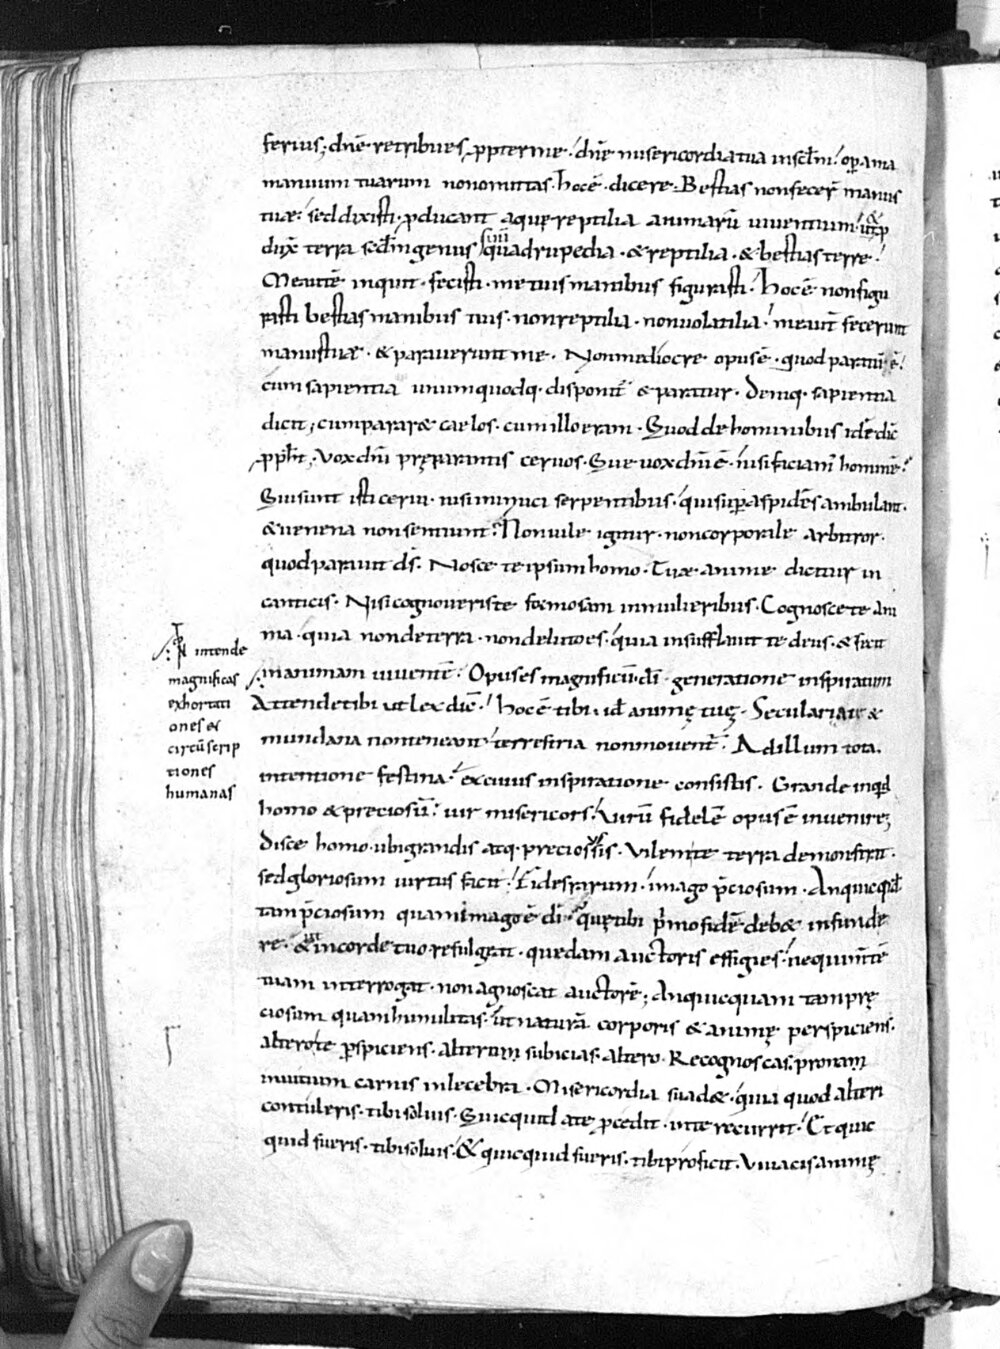 ferius; dnē retribues ppter me. dnē misericordia tua inseclm. opera ma
manuum tuarum non omittas. hoc ē. dicere. Bestias non fecer manus
tuæ. sed dixisti. pducant aquę reptilia animarū viventium. & ut p
dux terra secdm genus suū quadrupedia. & reptilia. & bestias terre.
Me autē inquit. fecisti. me tuis manibus figurasti. hoc ē non figu
rasti bestias manibus tuis. non reptilia. non volatilia. me aut fecerunt
manus tuæ. & paraverunt me. Non mediocre opus ē. quod paratū ē.
cum sapientia unumquodq. disponit & paratur. Deniq. sapientia
dicit; cum pararæ caelos. cum illo eram. Quod de hominibus idē dic
ppħt; Vox dni pręparantis cervos. Que vox dni ē. nisi faciam hominē.
Qui sunt isti cervi. nisi inimici serpentibus. qui sup aspidēs ambulant.
& venena non sentiunt. Non vile igitur. non corporale arbitror.
quod paravit ds. Nosce te ipsum homo. Tuæ anime dicitur in
canticis. Nisi cognoveris te formosam in mulieribus. Cognosce te ani
ma. quia non de terra. non de luto es. quia insufflavit te deus. & fecit
in animam viventē. Opus es magnificū. di generatione inspiratum
Attende tibi ut lex dic. hoc ē tibi. id animę tuę. Seculariate &
mundana non teneant. terrestria non movent. Ad illum tota.
intentione festina. ex cuius inspiratione consistis. Grande inquid
homo & preciosū. vir misericors. Virū fidelē opus ē invenire;
Disce homo. ubi grandis atq. preciosus sis. Vilem te terra demonstrat.
sed gloriosum virtus facit. Fides rarum. imago pciosum. An quicqd
tam pciosum quam imago ē di. quę tibi primo fidē debæ infunde
re. & ut in corde tuo refulgeat. quedam auctoris effigies. ne qui mtē
tuam interrogat. non agnoscat auctorē; An quicquam tam prę
ciosum quam humilitas. ut naturā corporis & animę perspiciens.
altero te pspiciens. alterum subicias. altero. Recognoscas. pronam
in vitium carnis inlecebra. Misericordia suadæ. quia quod alteri
contuleris. tibi solvis. Quicquid a te pcedit. in te recurrit. Et quic
quid fueris. tibi solvis. & quicquid fueris. tibi proficit. Vivacis animę
intende
magnificas
exhortati
ones &
circūscrip
tiones
humanas